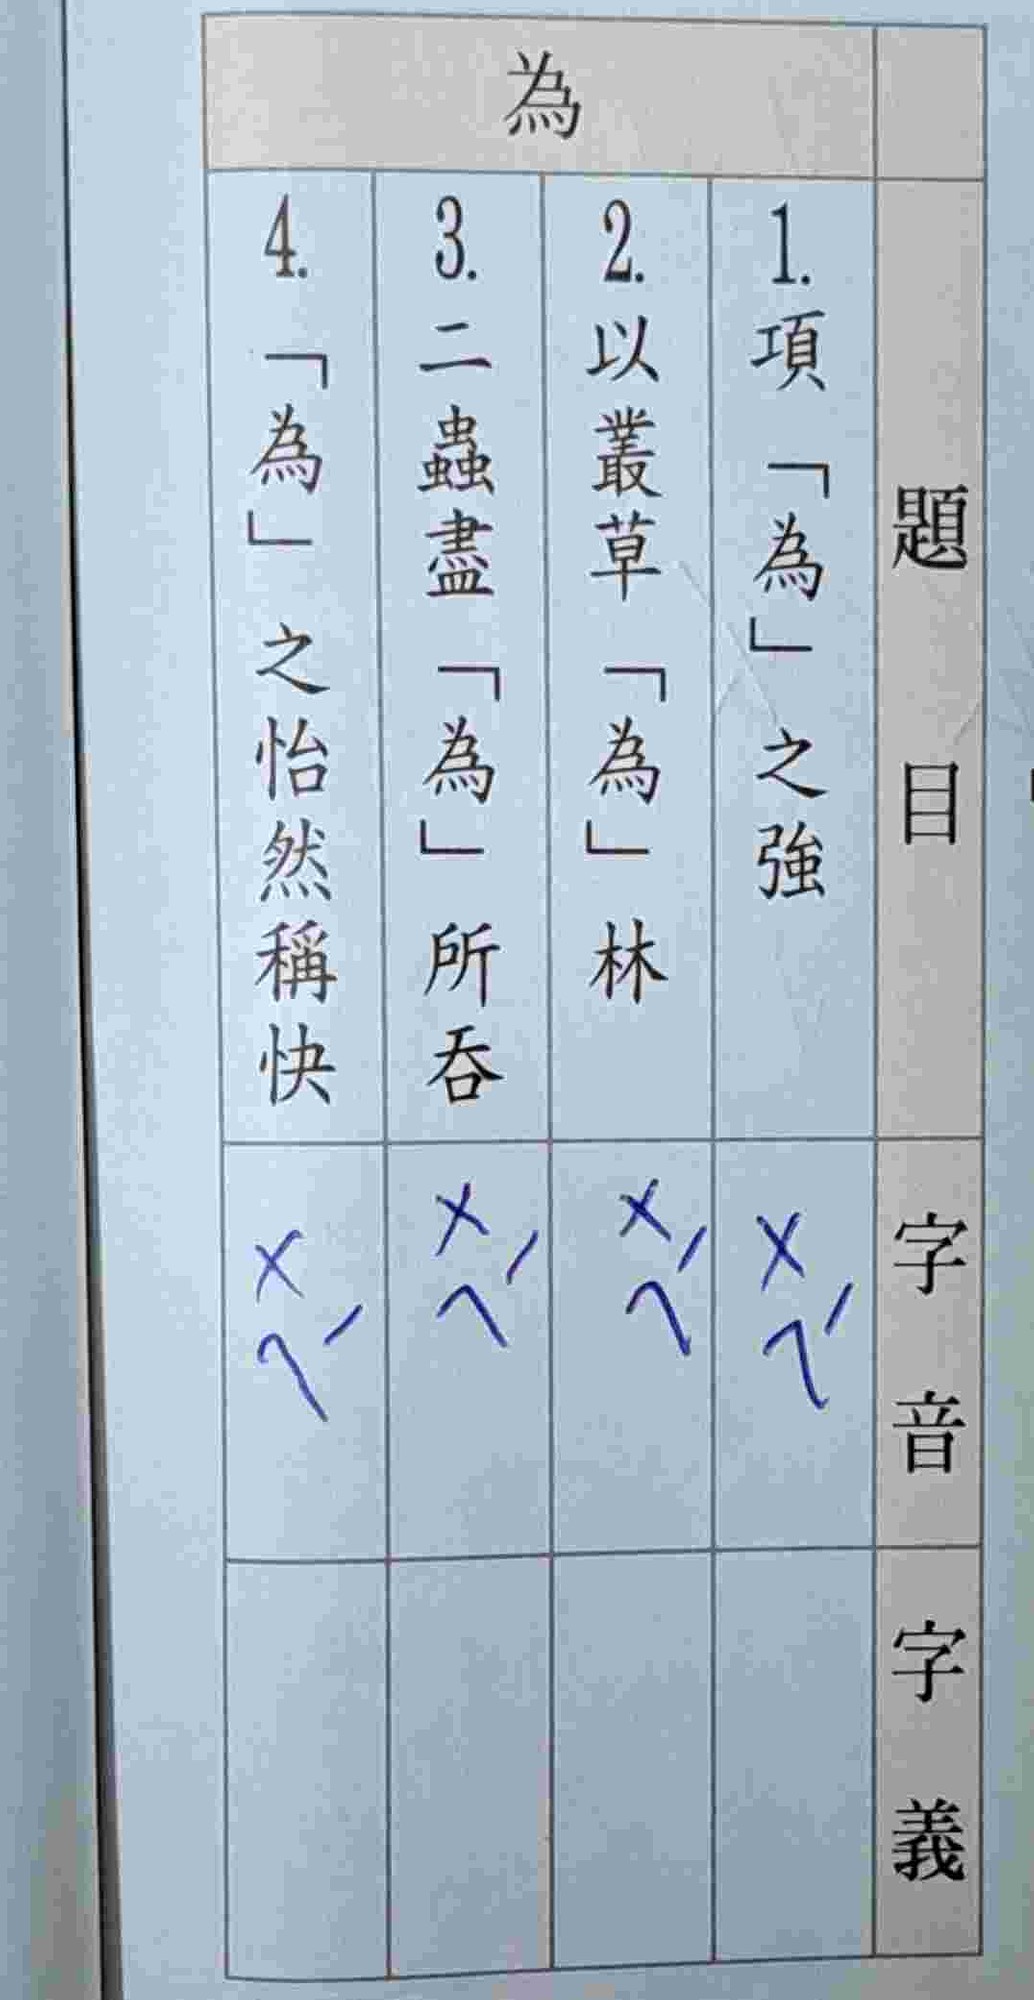 為
題目
字音
字義
1.項「為」之強
ㄨㄟˊ
2.以叢草「為」林
ㄨㄟˊ
3.二蟲盡「為」所吞
ㄨㄟˊ
4.「為」之怡然稱快
ㄨㄟˊ